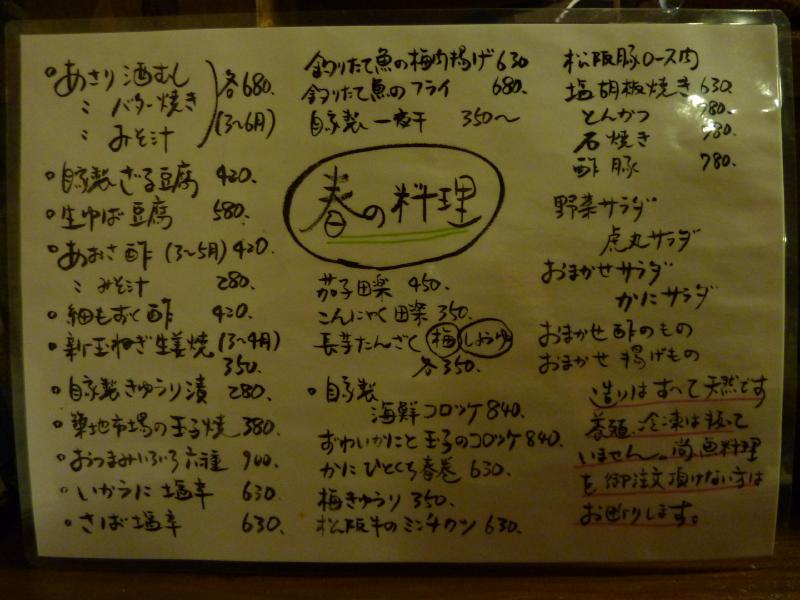 。あさり 酒むし
〃 バター焼き
〃 みそ汁
各680.
(3〜6月)
。自家製ざる豆腐 420.
。生ゆば豆腐 580.
。あおさ酢 (3〜5月) 420.
〃 みそ汁 280.
。細もずく酢 420.
。新玉ねぎ生姜焼 (3〜4月)
350.
。自家製きゅうり漬 280.
。築地市場の玉子焼 380.
。おつまみいろいろ六種 900.
。いかうに塩辛 630.
。さば塩辛 630.
釣りたて魚の梅肉揚げ 630
釣りたて魚のフライ 680.
自家製一夜干 350〜
春の料理
茄子田楽 450.
こんにゃく田楽 350.
長芋たんざく 梅 しょうゆ
各350.
。自家製
海鮮コロッケ 840.
ずわいかにと玉子のコロッケ 840.
かにひとくち春巻 630.
梅きゅうり 350.
松阪牛のミンチカツ 630.
松阪豚ロース肉
塩胡椒焼き 630.
とんかつ 780.
石焼き 780.
酢豚 780.
野菜サラダ
虎丸サラダ
おまかせサラダ
かにサラダ
おまかせ酢のもの
おまかせ揚げもの
造りはすべて天然です
養殖、冷凍は扱って
いません。尚、料理
を御注文頂けない方は
お断りします。